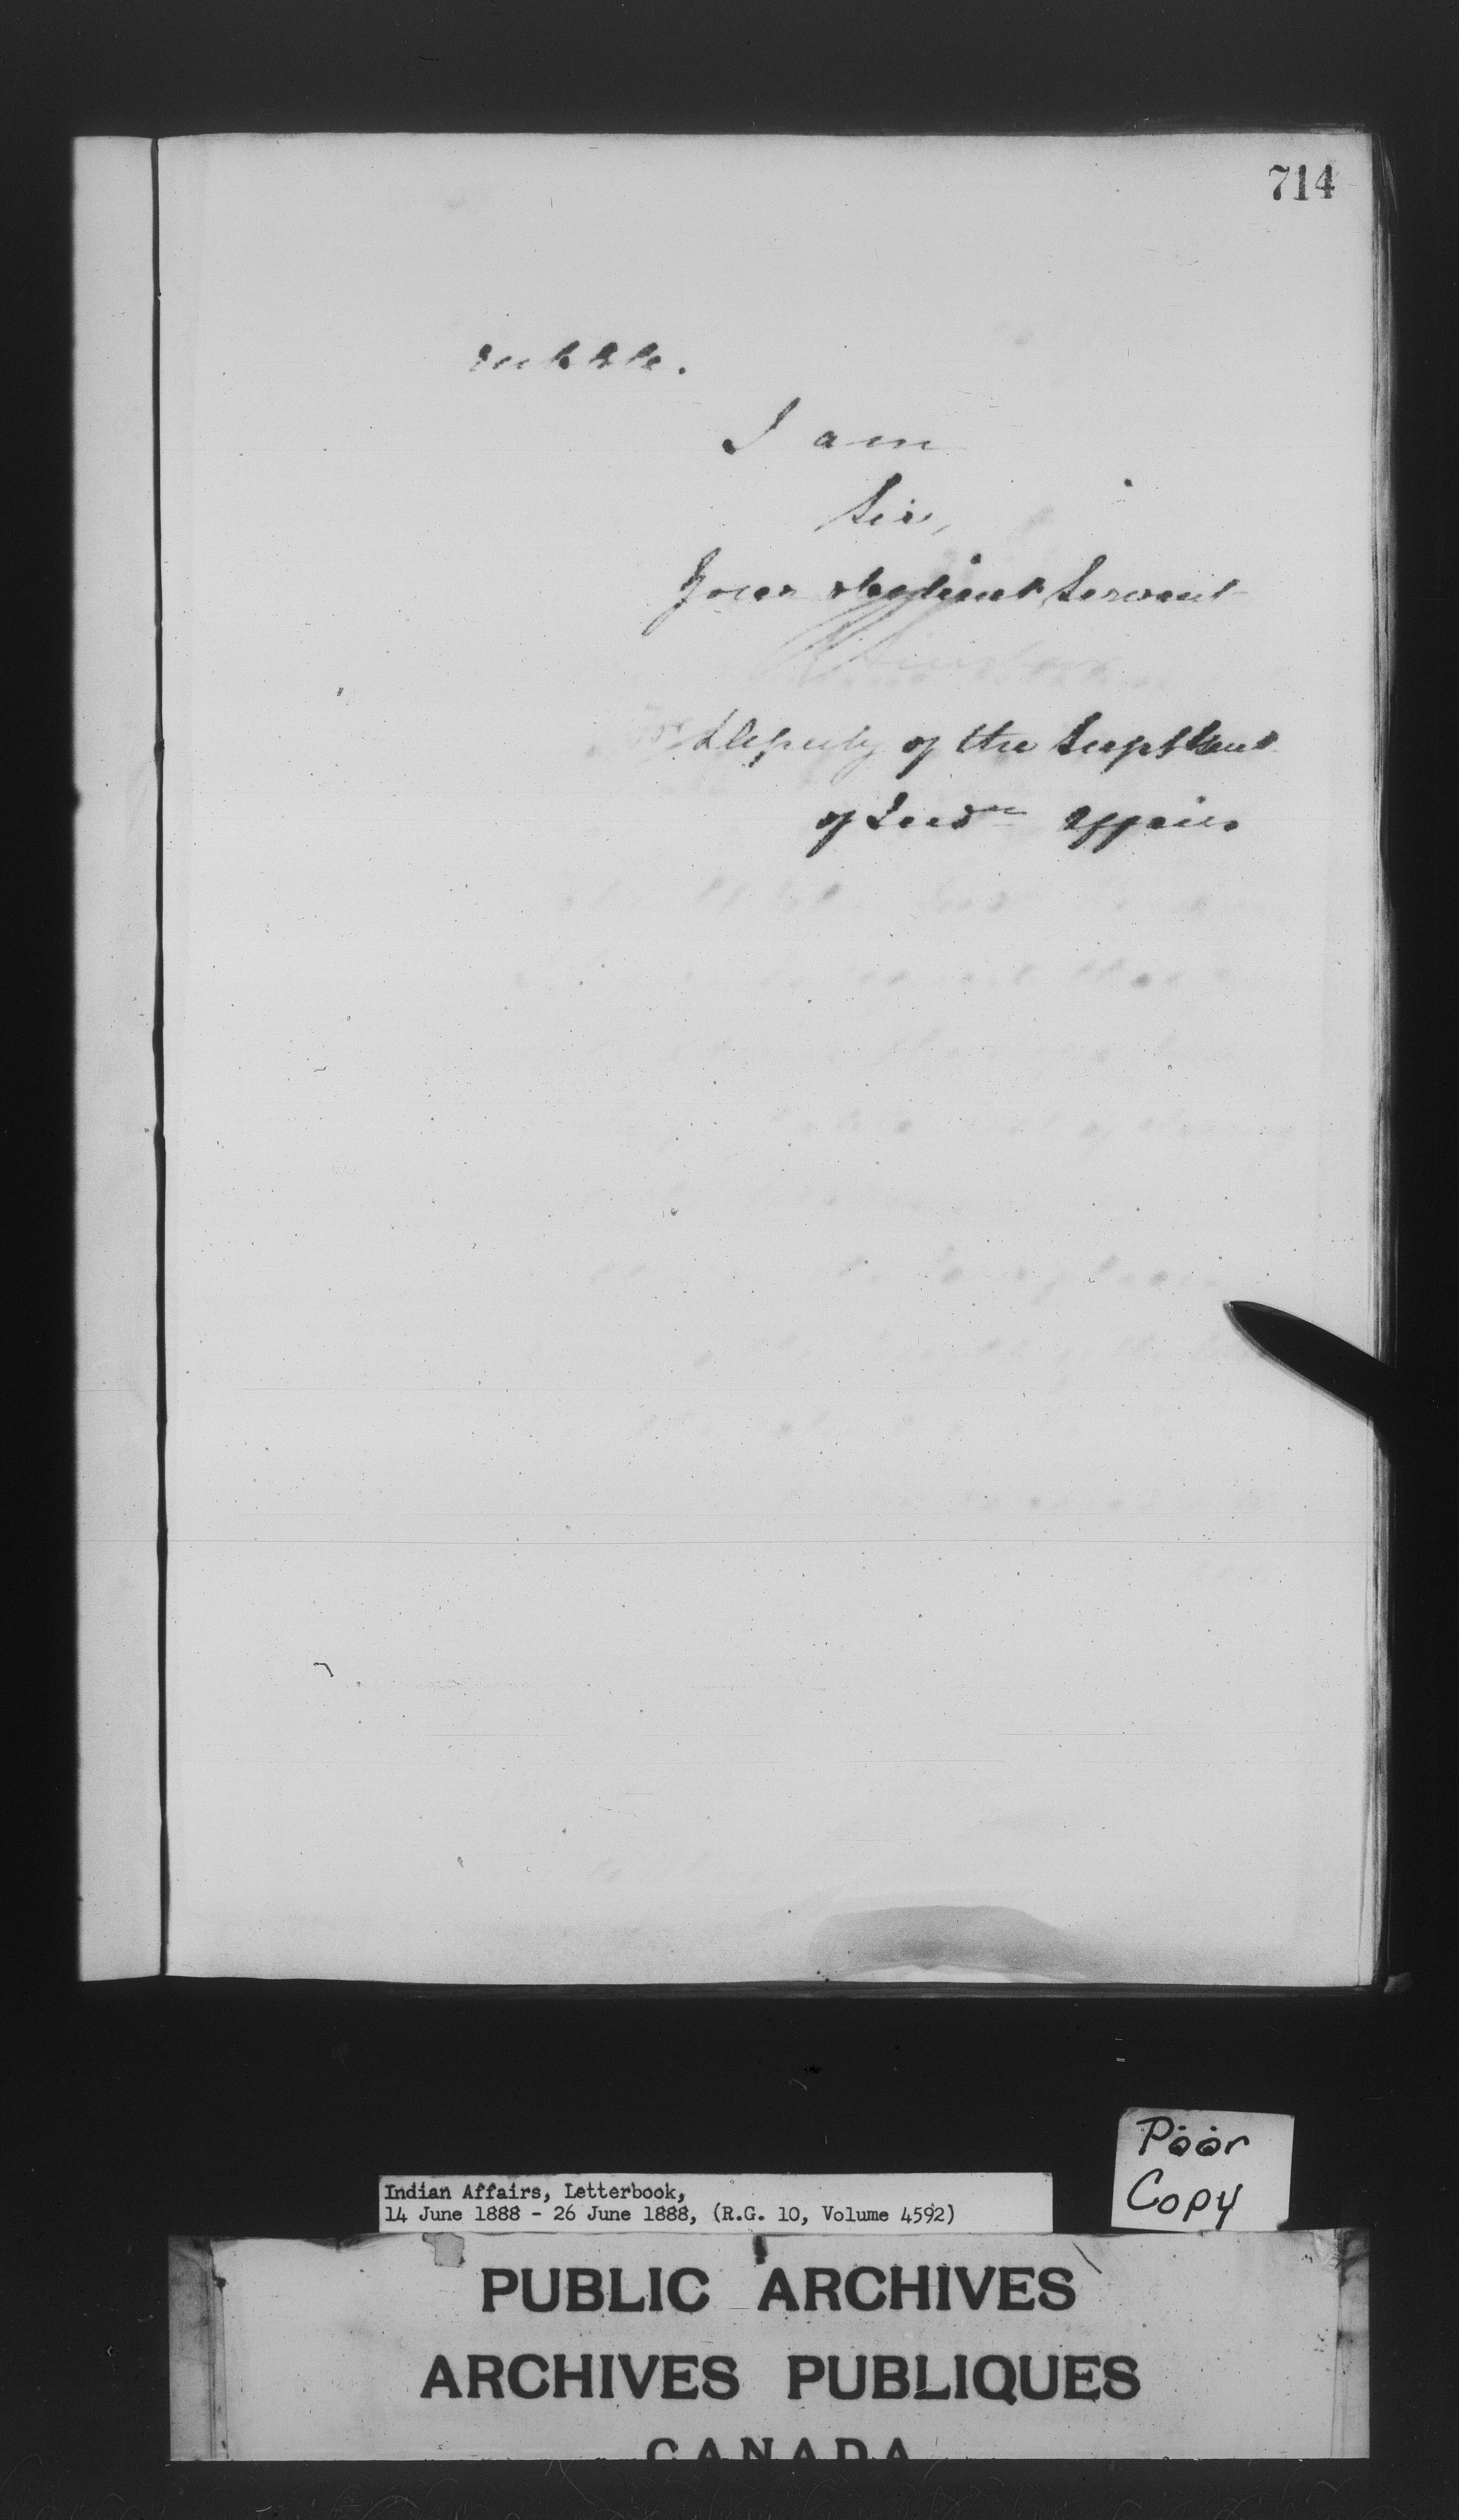 714
rubble.
I am
Sir,
Your obedient Servant
R Sinclair
For Deputy of the Supt Genl
of Indn Affairs
Poor
Copy
Indian Affairs, Letterbook,
14 June 1888 - 26 June 1888, (R.G. 10, Volume 4592)
PUBLIC ARCHIVES
ARCHIVES PUBLIQUES
CANADA